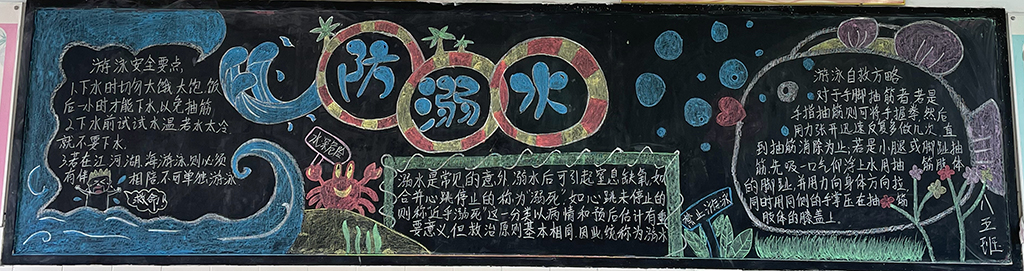 防溺水
游泳安全要点
1.下水时切勿太饿、太饱.饭
后一小时才能下水,以免抽筋
2.下水前试试水温,若水太冷
就不要下水.
3.若在江、河、湖、海游泳则必须
有伴相陪不可单独游泳.
救命
溺水是常见的意外,溺水后可引起窒息缺氧,如
合并心跳停止的称为"溺死",如心跳未停止的
则称"近乎溺死"这一分类以病情和预后估计有重
要意义,但救治原则基本相同,因此统称为溺水
禁止游泳
游泳自救方略
对于手脚抽筋者,若是
手指抽筋则可将手握拳,然后
用力张开,迅速反复多做几次,直
到抽筋消除为止;若是小腿或脚趾抽
筋,先吸一口气仰浮上水,用抽筋肢体
的脚趾,并用力向身体方向拉,
同时用同侧的手掌压在抽筋
肢体的膝盖上.
八五班